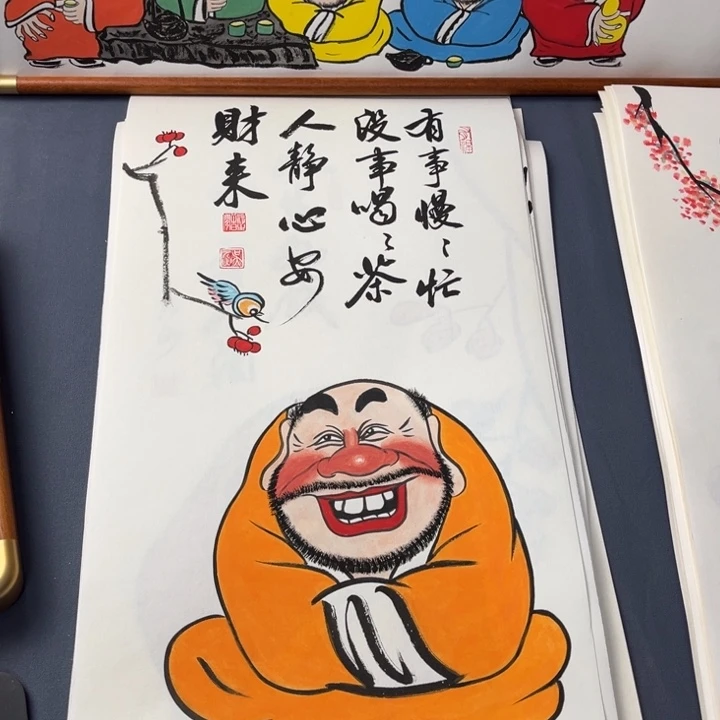 有事慢〻忙
没事喝〻茶
人静心安
财来